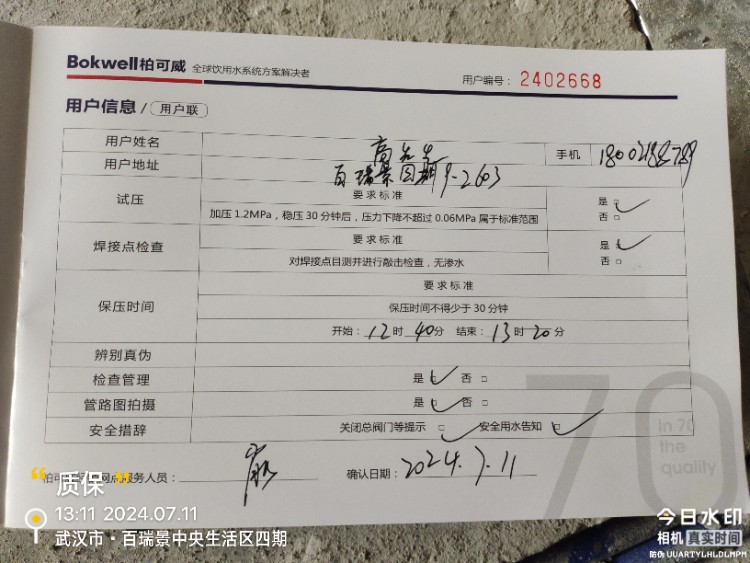 Bokwell柏可威 全球饮用水系统方案解决者
用户编号： 2402668
用户信息 / 用户联
用户姓名 高先生 手机
用户地址 百瑞景四期9-2603
试压 要求标准 是 □
加压 1.2MPa，稳压 30 分钟后，压力下降不超过 0.06MPa 属于标准范围 否 □
焊接点检查 要求标准 是 □
对焊接点目测并进行敲击检查，无渗水 否 □
保压时间 要求标准
保压时间不得少于 30 分钟
开始：12 时 40 分 结束：13 时 20 分
辨别真伪
检查管理 是 □ 否 □
管路图拍摄 是 □ 否 □
安全措辞 关闭总阀门等提示 □ 安全用水告知 □
70
In 70
the
quality
服务人员：
确认日期：2024.7.11
质保
13:11 2024.07.11
武汉市·百瑞景中央生活区四期
今日水印
相机 真实时间
防伪 UUARTYLHLDLMPM